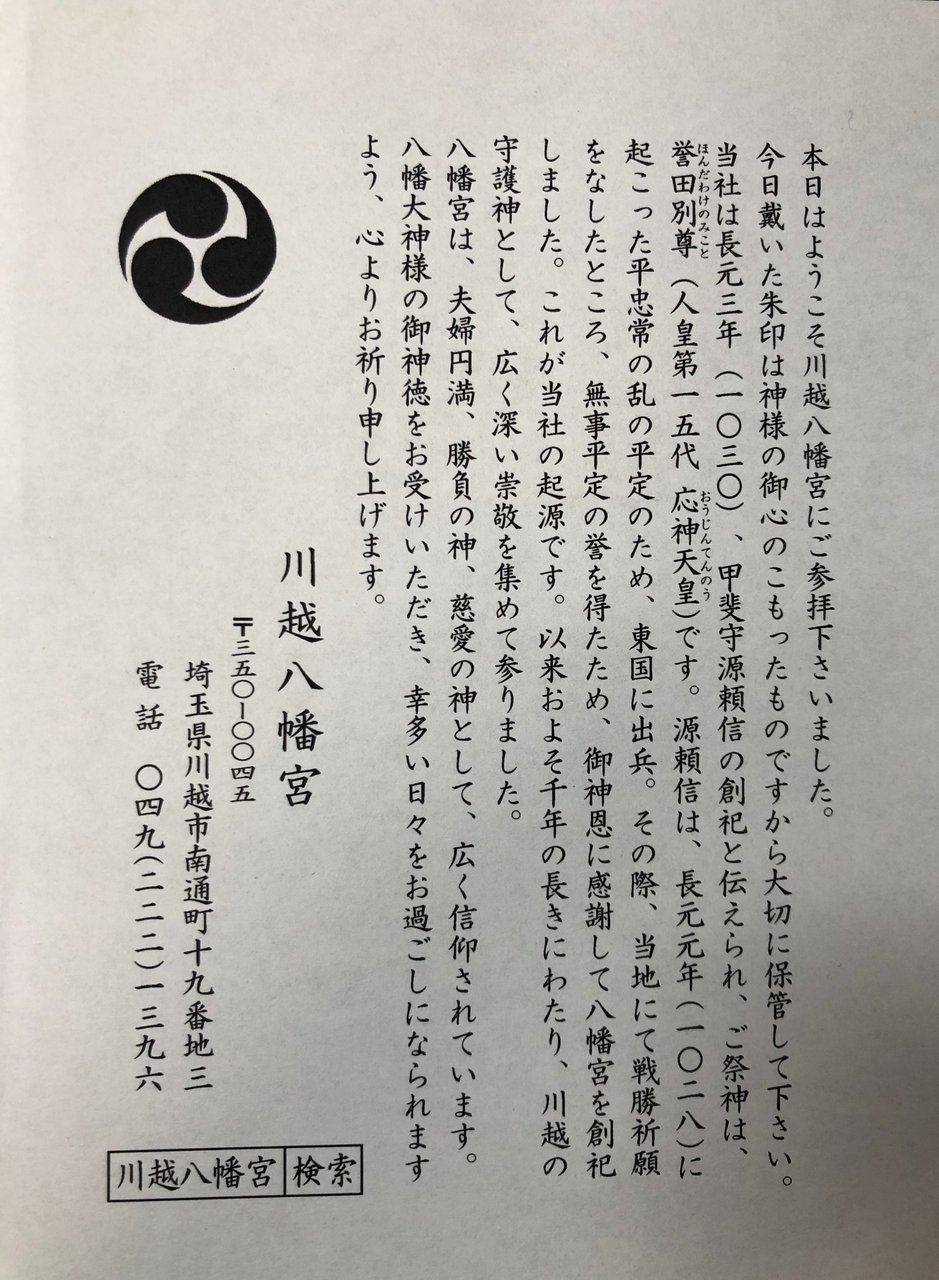 本日はようこそ川越八幡宮にご参拝下さいました。
今日戴いた朱印は神様の御心のこもったものですから大切に保管して下さい。
当社は長元三年(一〇三〇)、甲斐守源頼信の創祀と伝えられ、ご祭神は、
ほんだわけのみこと
おうじんてんのう
誉田別尊(人皇第一五代 応神天皇)です。源頼信は、長元元年(一〇二八)に
起こった平忠常の乱の平定のため、東国に出兵。その際、当地にて戦勝祈願
をなしたところ、無事平定の誉を得たため、御神恩に感謝して八幡宮を創祀
しました。これが当社の起源です。以来およそ千年の長きにわたり、川越の
守護神として、広く深い崇敬を集めて参りました。
八幡宮は、夫婦円満、勝負の神、慈愛の神として、広く信仰されています。
八幡大神様の御神徳をお受けいただき、幸多い日々をお過ごしになられます
よう、心よりお祈り申し上げます。
川越八幡宮
〒三五〇-〇〇四五
埼玉県川越市南通町十九番地三
電話 〇四九(二二二)一三九六
川越八幡宮 検索